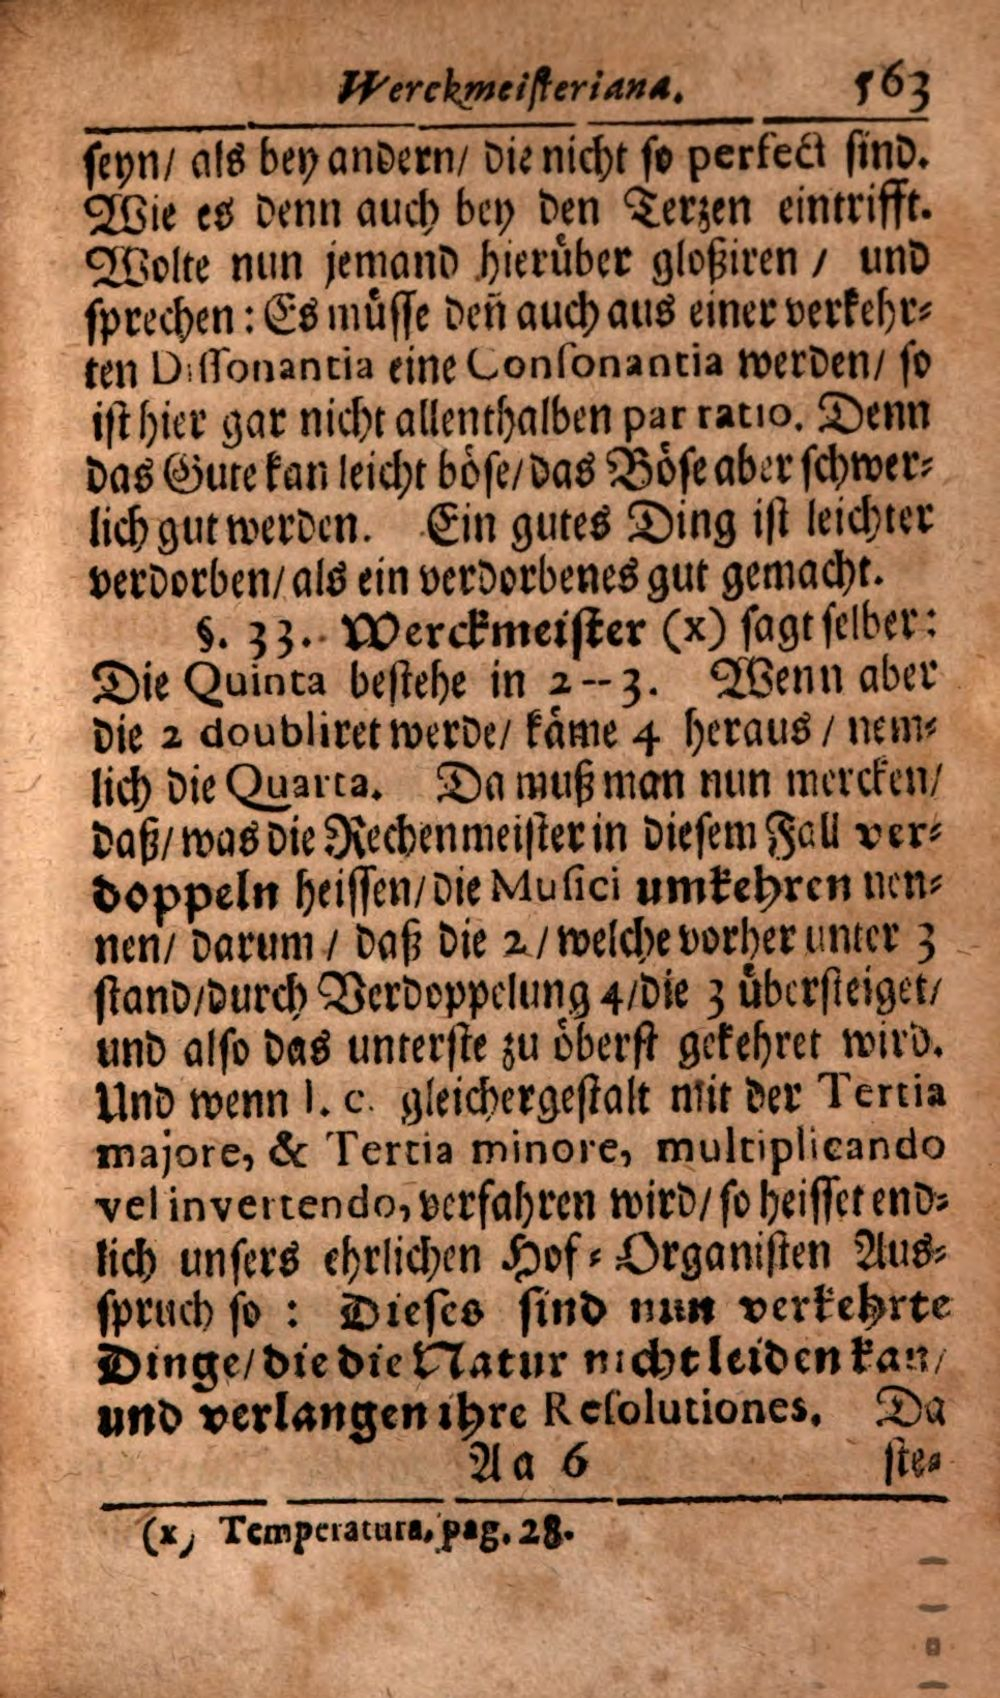 Werckmeisteriana. 563
seyn/ als bey andern/ die nicht so perfect sind.
Wie es denn auch bey den Terzen eintrifft.
Wolte nun jemand hierüber gloßiren / und
sprechen: Es müsse deñ auch aus einer verkehr-
ten Dissonantia eine Consonantia werden/ so
ist hier gar nicht allenthalben par ratio. Denn
das Gute kan leicht böse/ das Böse aber schwer-
lich gut werden. Ein gutes Ding ist leichter
verdorben/ als ein verdorbenes gut gemacht.
§. 33. Werckmeister (x) sagt selber:
Die Quinta bestehe in 2--3. Wenn aber
die 2 doubliret werde/ käme 4 heraus / nem-
lich die Quarta. Da muß man nun mercken/
daß/ was die Rechenmeister in diesem Fall ver-
doppeln heissen/ die Musici umkehren nen-
nen/ darum / daß die 2 / welche vorher unter 3
stand/ durch Verdoppelung 4/ die 3 übersteiget/
und also das unterste zu öberst gekehret wird.
Und wenn l. c. gleichergestalt mit der Tertia
majore, & Tertia minore, multiplicando
vel invertendo, verfahren wird/ so heisset end-
lich unsers ehrlichen Hof-Organisten Aus-
spruch so : Dieses sind nun verkehrte
Dinge/ die die Natur nicht leiden kan/
und verlangen ihre Resolutiones. Da
Aa 6 ste-
(x) Temperatura, pag. 28.